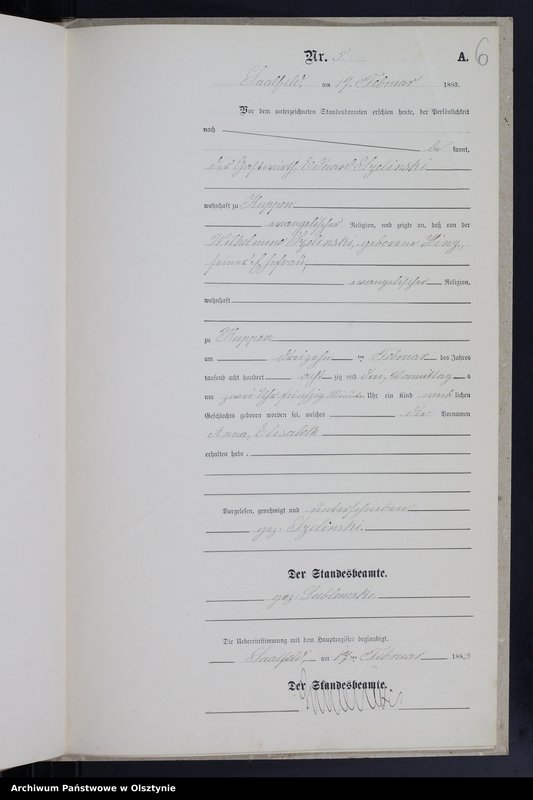 Nr. 5
A. 6
Saalfeld, am 17. Februar 1883.
Vor dem unterzeichneten Standesbeamten erschien heute, der Persönlichkeit
nach
be kannt,
der Gastwirth Eduard
wohnhaft zu Kuppen
evangelischer Religion, und zeigte an, daß von der
Wilhelmine geborene Hinz,
seiner Ehefrau,
evangelischer Religion,
wohnhaft
zu Kuppen
am dreizehn ten Februar des Jahres
tausend acht hundert acht zig und drei, Vormittag s
um Uhr Minute Uhr ein Kind weib lichen
Geschlechts geboren worden sei, welches die Vornamen
Anna, Elisabeth
erhalten habe.
Vorgelesen, genehmigt und unterschrieben.
gez.
Der Standesbeamte.
gez.
Die Uebereinstimmung mit dem Hauptregister beglaubigt.
Saalfeld, am 17ten Februar 1883
Der Standesbeamte.
Archiwum Państwowe w Olsztynie